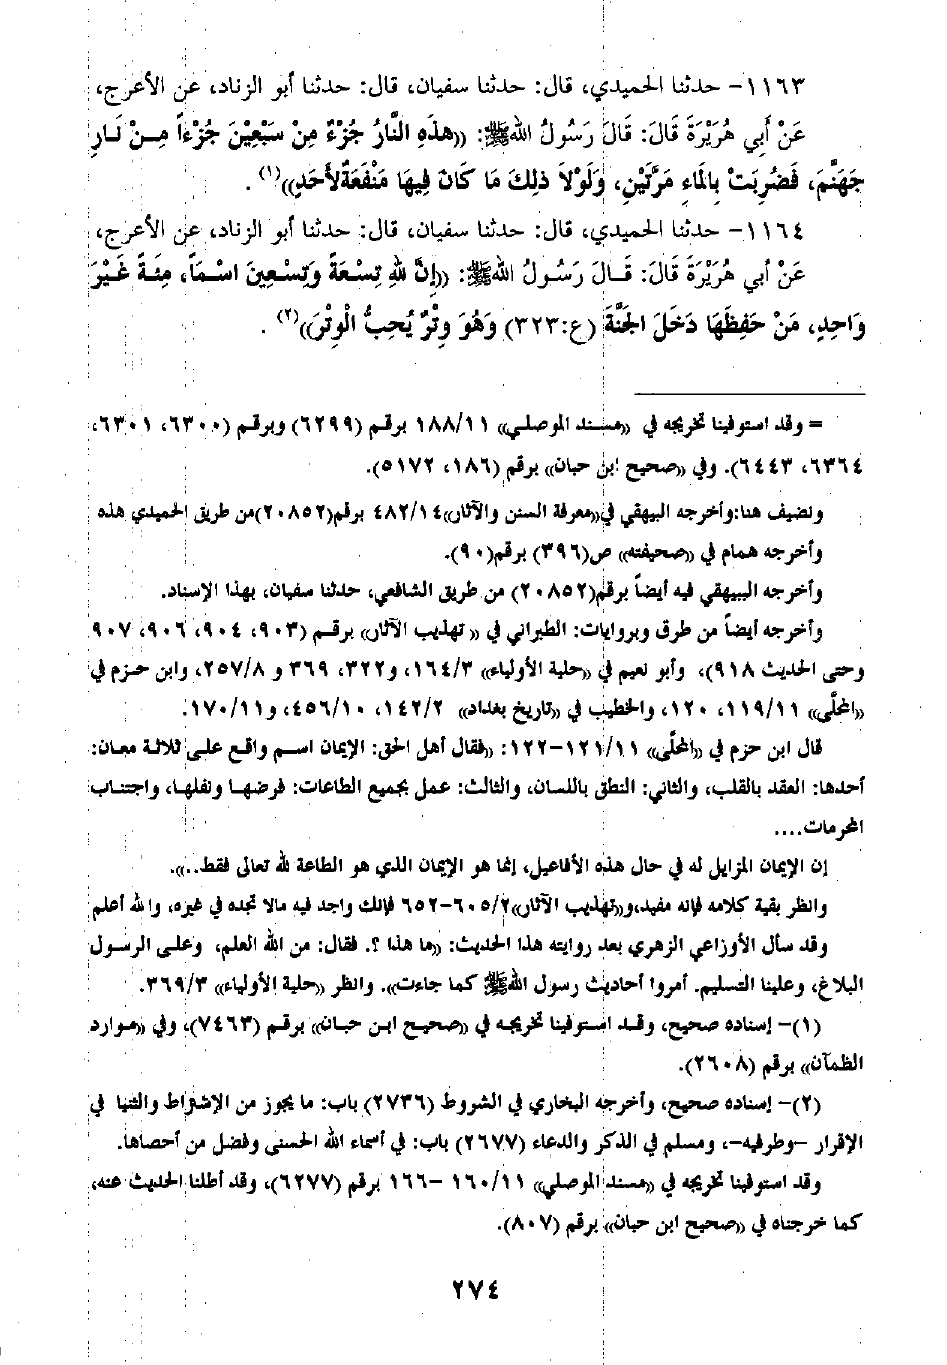 ١١٦٣- حدثنا الحميدي، قال: حدثنا سفيان، قال: حدثنا أبو الزناد، عن الأعرج،
عَنْ أَبِي هُرَيْرَةَ قَالَ: قَالَ رَسُولُ اللهِ ﷺ: ((هذِهِ النَّارُ جُزْءٌ مِنْ سَبْعِيْنَ جُزْءاً مِـنْ نَـارِ
جَهَنَّمَ، فَضُرِبَتْ بِالْمَاءِ مَرَّتَيْنِ، وَلَوْلاَ ذلِكَ مَا كَانَ فِيهَا مَنْفَعَةٌ لأَحَدٍ))(١) .
١١٦٤- حدثنا الحميدي، قال: حدثنا سفيان، قال: حدثنا أبو الزناد، عن الأعرج،
عَنْ أبي هُرَيْرَةَ قَالَ: قَـالَ رَسُولُ اللهِ ﷺ: ((إنَّ لِلهِ تِسْعَةً وَتِسْعِينَ اسْـمَاً، مِئَـةً غَـيْرَ
وَاحِدٍ، مَنْ حَفِظَهَا دَخَلَ الْجَنَّةَ (ع:٣٢٣) وَهُوَ وِتْرٌ يُحِبُّ الْوِتْرَ))(٢) .
= وقد استوفينا تخريجه في ((مسـند الموصلـي)) ١٨٨/١١ برقـم (٦٢٩٩) وبرقـم (٦٣٠٠، ٦٣٠١،
٦٣٦٤، ٦٤٤٣). وفي ((صحيح ابن حبان)) برقم (١٨٦، ٥١٧٢).
ونضيف هنا:وأخرجه البيهقي في((معرفة السنن والآثار))٤٨٢/١٤ برقم(٢٠٨٥٢)من طريق الحميدي هذه
وأخرجه همام في ((صحيفته)) ص(٣٩٦) برقم(٩٠).
وأخرجه البيهقي فيه أيضاً برقم(٢٠٨٥٢) من طريق الشافعي، حدثنا سفيان، بهذا الإسناد.
وأخرجه أيضاً من طرق وبروايات: الطبراني في (( تهذيب الآثار)) برقـم (٩٠٣، ٩٠٤، ٩٠٦، ٩٠٧
وحتى الحديث ٩١٨)، وأبو نعيم في ((حلية الأولياء)) ١٦٤/٣، و٣٢٢، ٣٦٩ و ٢٥٧/٨، وابن حـزم في
((المحلَّى)) ١١٩/١١، ١٢٠، والخطيب في ((تاريخ بغداد)) ١٤٢/٢، ٤٥٦/١٠، و١٧٠/١١.
قال ابن حزم في ((المحلَّى)) ١٢١/١١-١٢٢: ((فقال أهل الحق: الإيمان اسـم واقـع علـى ثلاثـة معـان:
أحدها: العقد بالقلب، والثاني: النطق باللسان، والثالث: عمل بجميع الطاعات: فرضهـا ونفلهـا، واجتنـاب
المحرمات....
إن الإيمان المزايل له في حال هذه الأفاعيل، إنما هو الإيمان الذي هو الطاعة لله تعالى فقط..)).
وانظر بقية كلامه فإنه مفيد،و((تهذيب الآثار))٦٠٥/٢-٦٥٢ فإنك واجد فيه مالا تجده في غيره، والله أعلم
وقد سأل الأوزاعي الزهري بعد روايته هذا الحديث: ((ما هذا ؟. فقال: من الله العلم، وعلـى الرسـول
البلاغ، وعلينا التسليم. أمروا أحاديث رسول الله ﷺ كما جاءت)). وانظر ((حلية الأولياء)) ٣٦٩/٣.
(١)- إسناده صحيح، وقـد استوفينا تخريجـه في ((صحيـح ابـن حبـان)) برقـم (٧٤٦٣)، وفي ((مـوارد
الظمآن)) برقم (٢٦٠٨).
(٢)- إسناده صحيح، وأخرجه البخاري في الشروط (٢٧٣٦) باب: ما يجوز من الإشتراط والثنيا في
الإقرار -وطرفيه-، ومسلم في الذكر والدعاء (٢٦٧٧) باب: في أسماء الله الحسنى وفضل من أحصاها.
وقد استوفينا تخريجه في ((مسند الموصلي)) ١٦٠/١١ -١٦٦ برقم (٦٢٧٧)، وقد أطلنا الحديث عنه،
كما خرجناه في ((صحيح ابن حبان)) برقم (٨٠٧).
٢٧٤